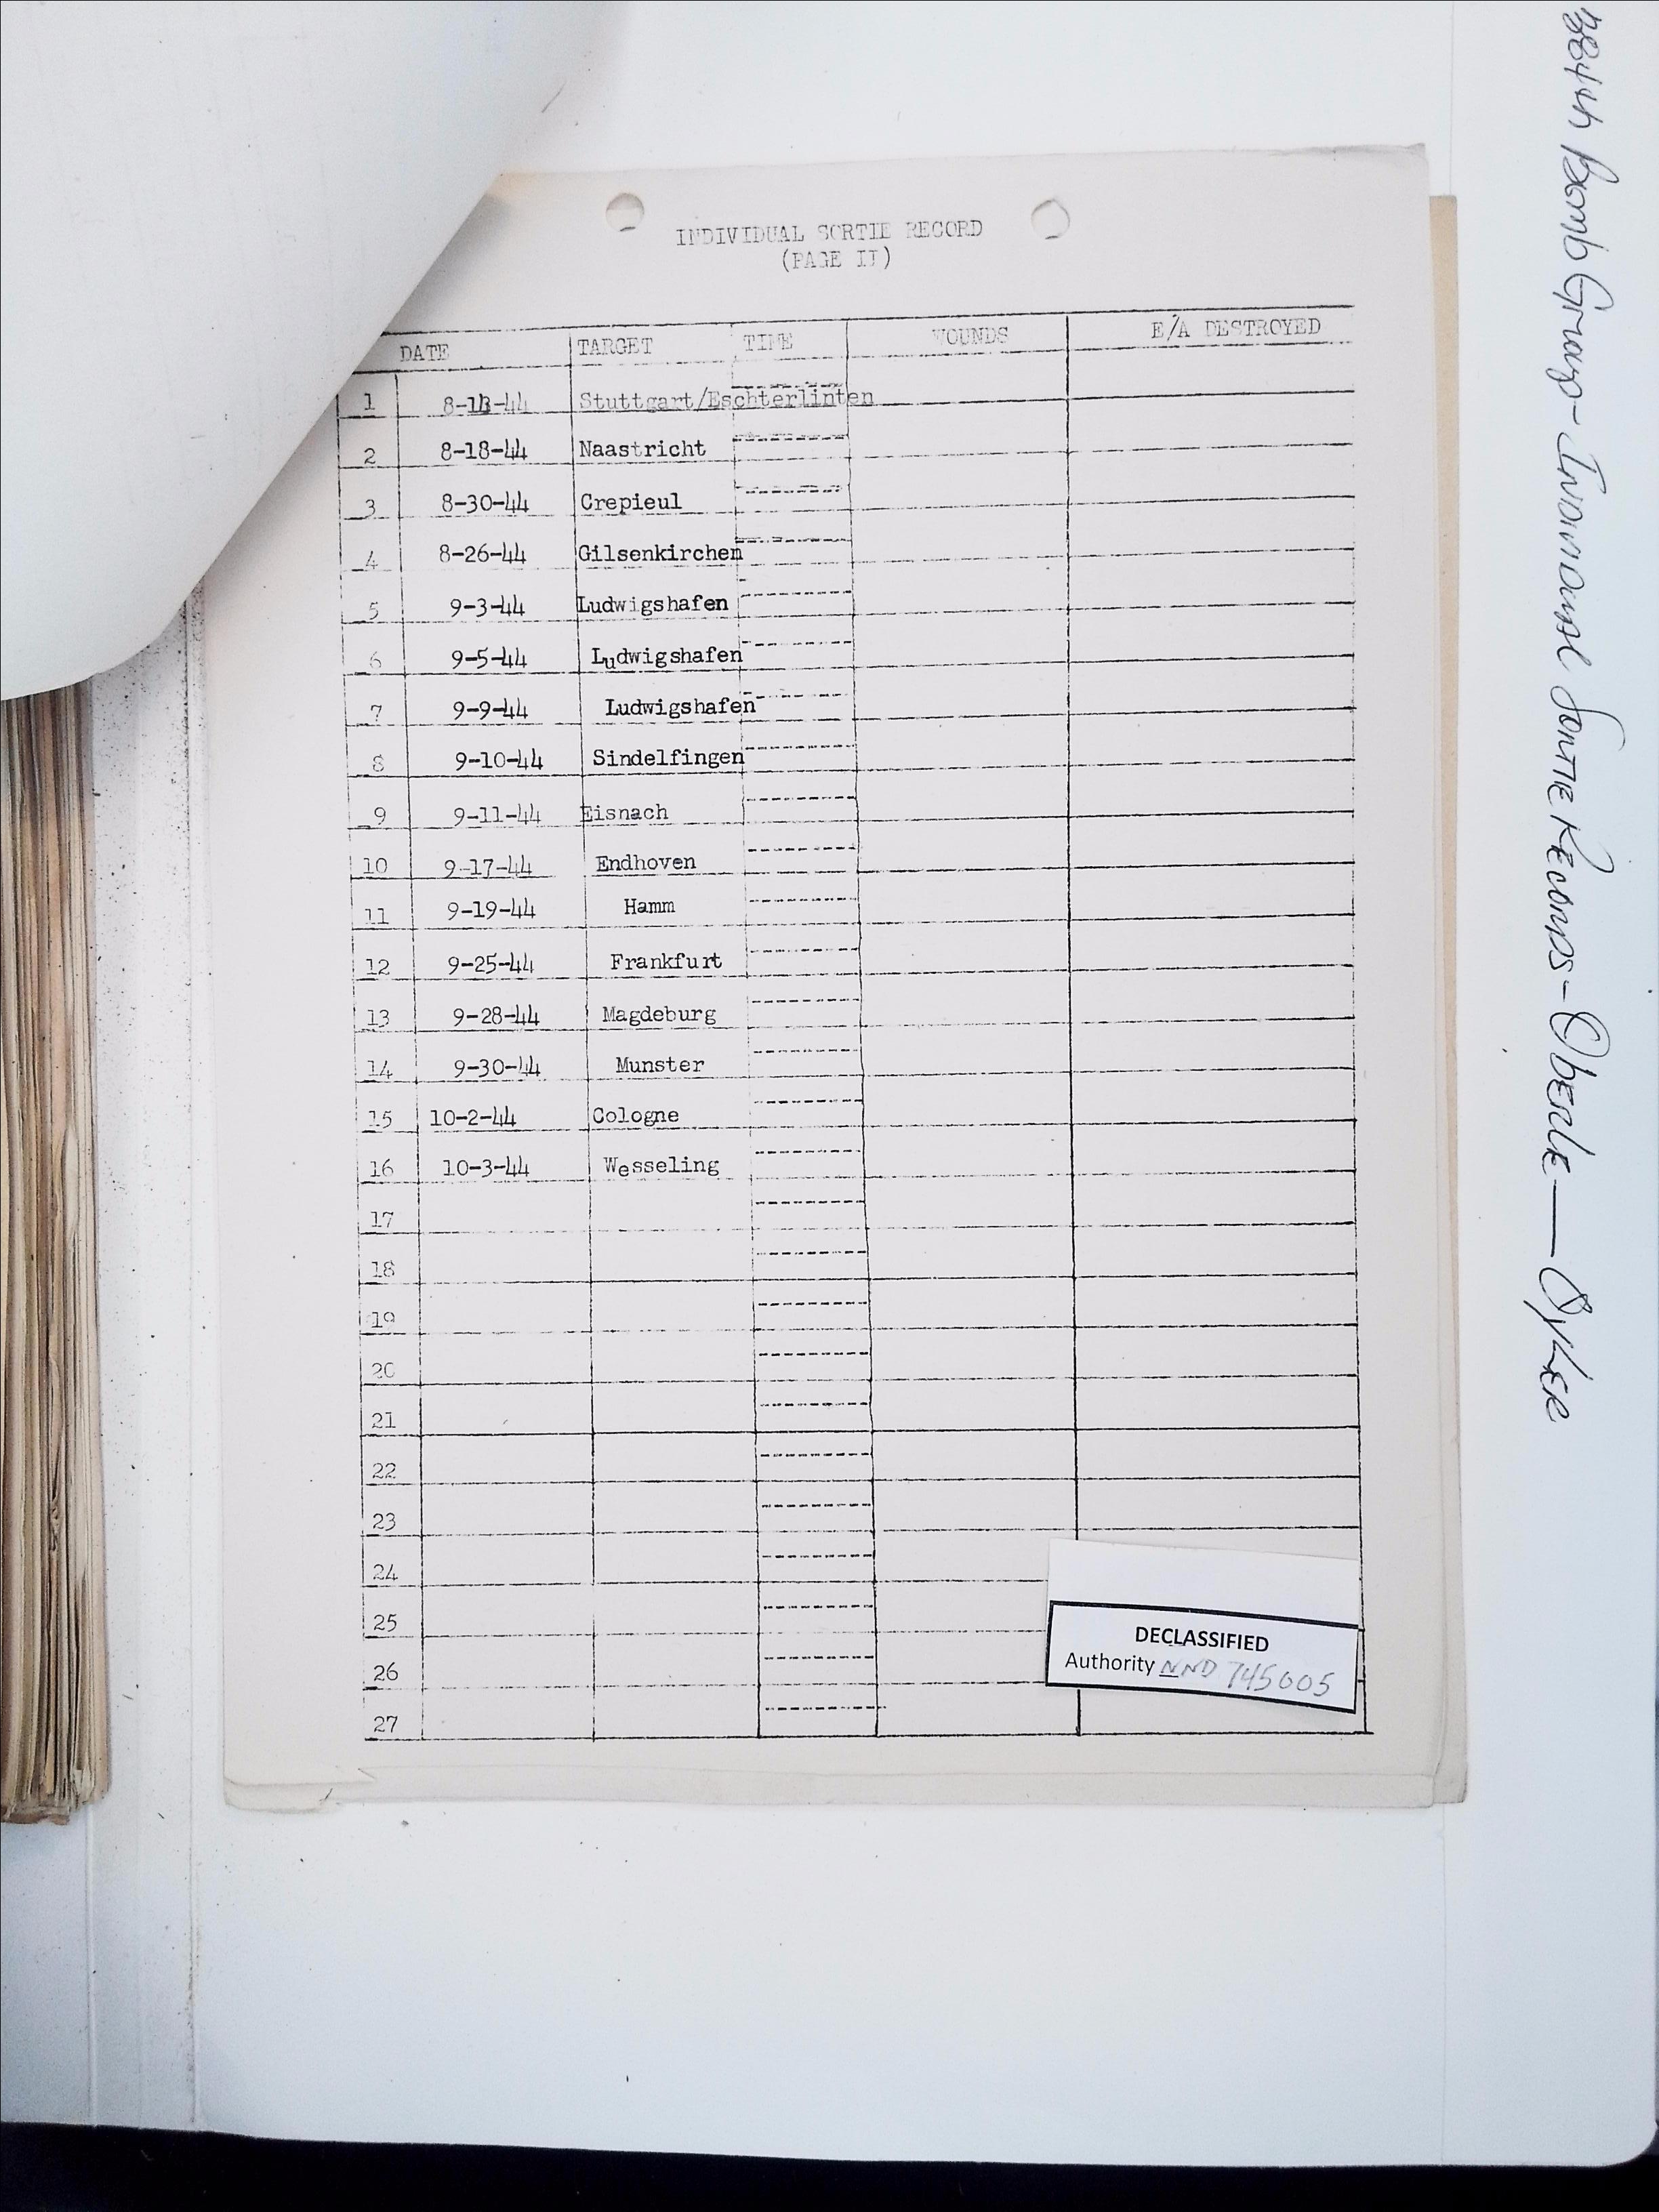 384th Bomb Group - Individual Sortie Records - Oberle — Oyler
INDIVIDUAL SORTIE RECORD
(PAGE II)
DATE TARGET TIME WOUNDS E/A DESTROYED
1 Stuttgart/Eschterlinten
2 8-18-44 Naastricht
3 8-30-44 Crepieul
4 8-26-44 Gilsenkirchen
5 9-3-44 Ludwigshafen
6 9-5-44 Ludwigshafen
7 9-9-44 Ludwigshafen
8 9-10-44 Sindelfingen
9 9-11-44 Eisnach
10 9-17-44 Endhoven
11 9-19-44 Hamm
12 9-25-44 Frankfurt
13 9-28-44 Magdeburg
14 9-30-44 Munster
15 10-2-44 Cologne
16 10-3-44 Wesseling
17
18
19
20
21
22
23
24
25
26
27
DECLASSIFIED
Authority NND 745005